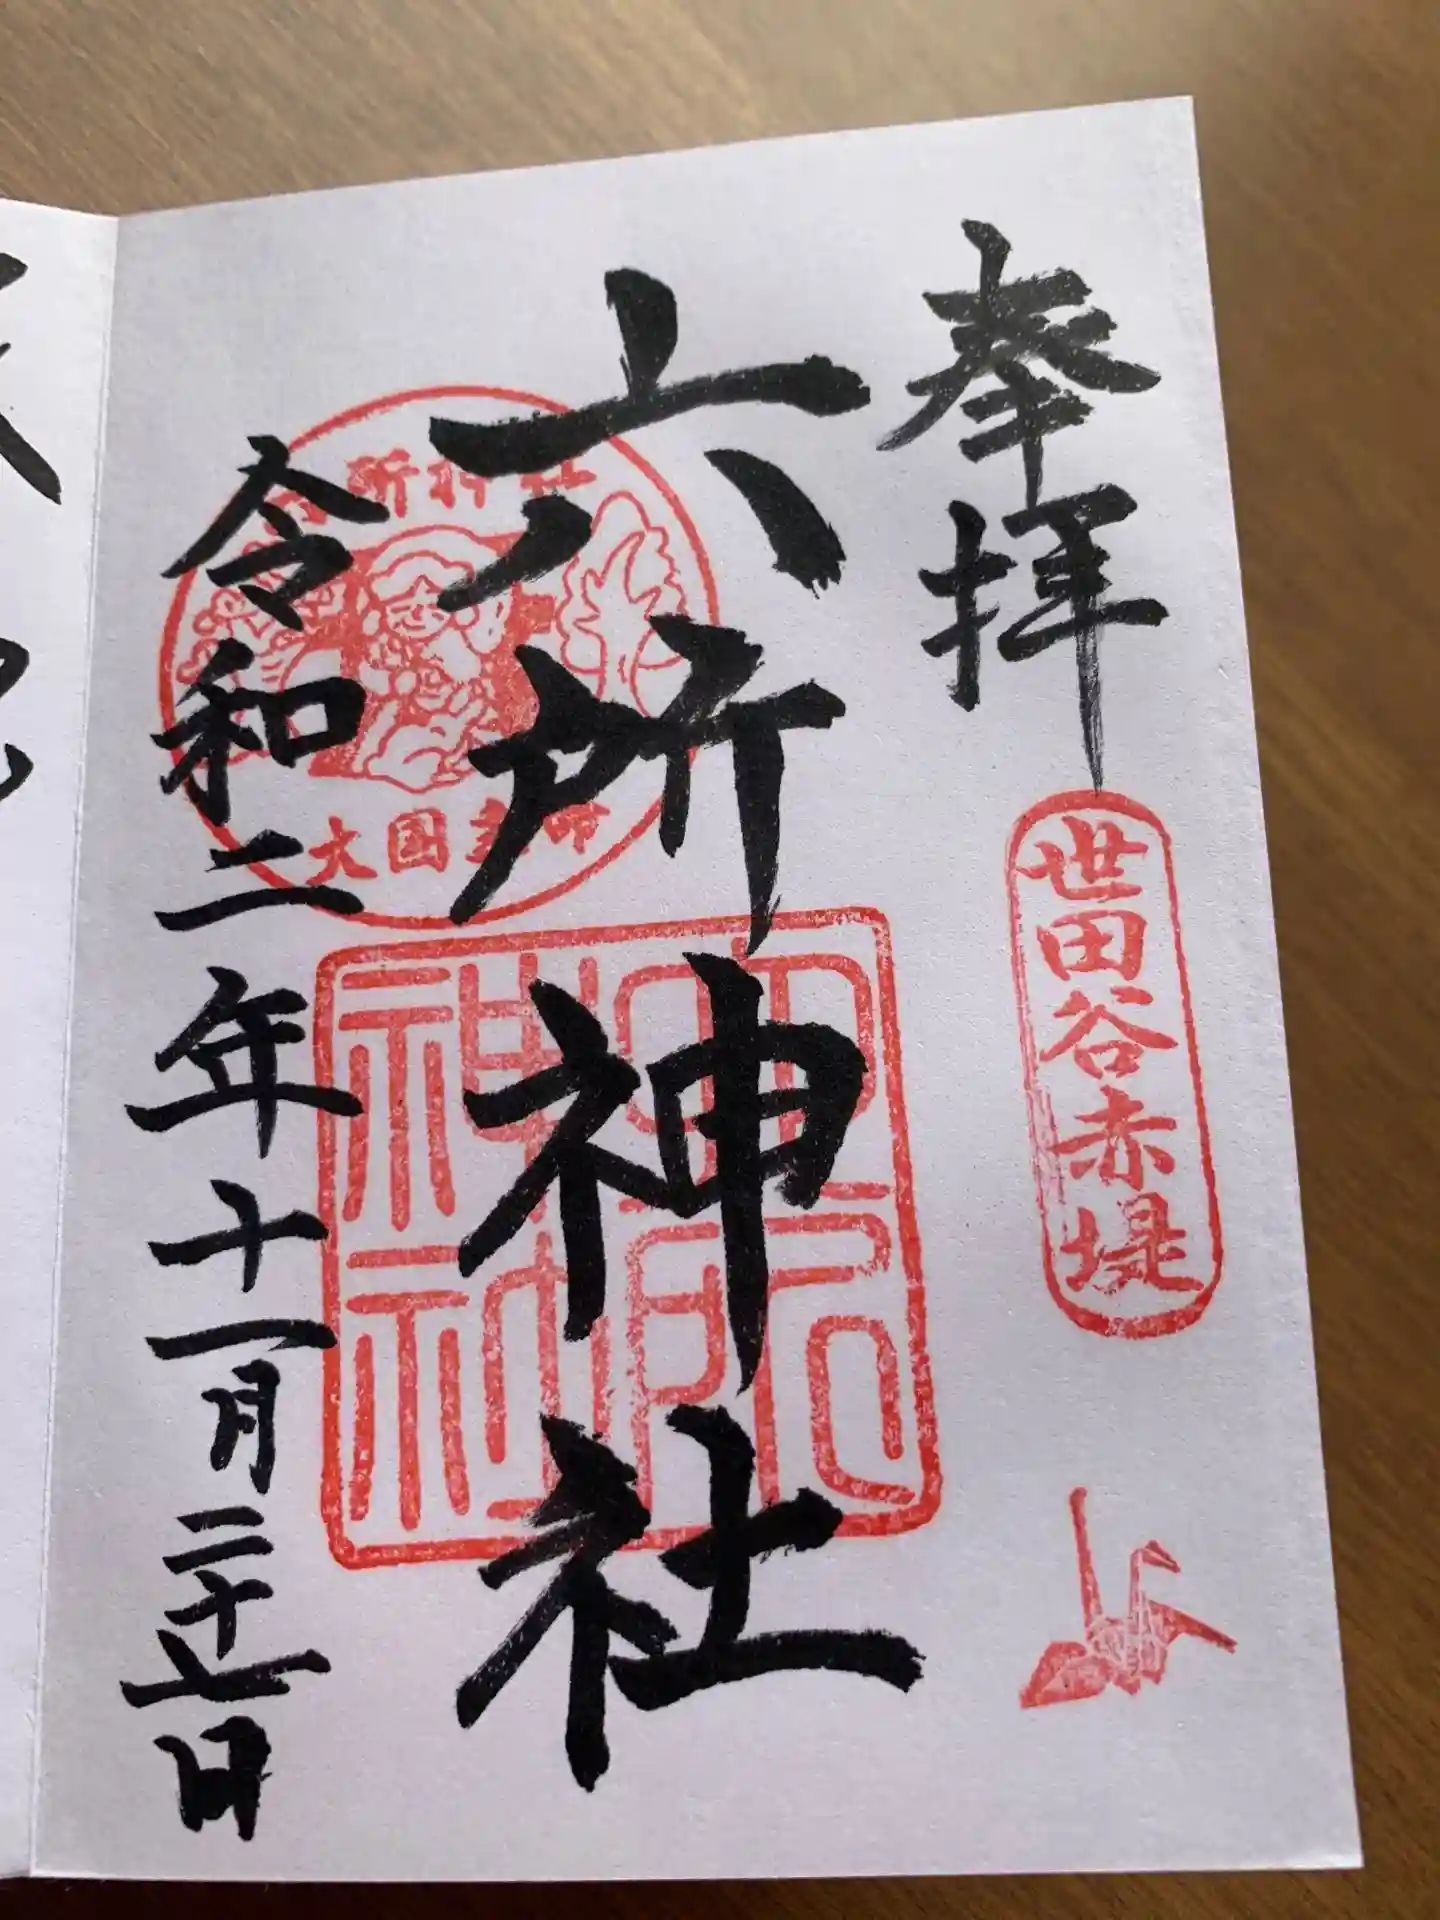 奉拝
世田谷赤堤
六所神社
六所神社
大国主命
六所神社
令和二年十一月二十七日